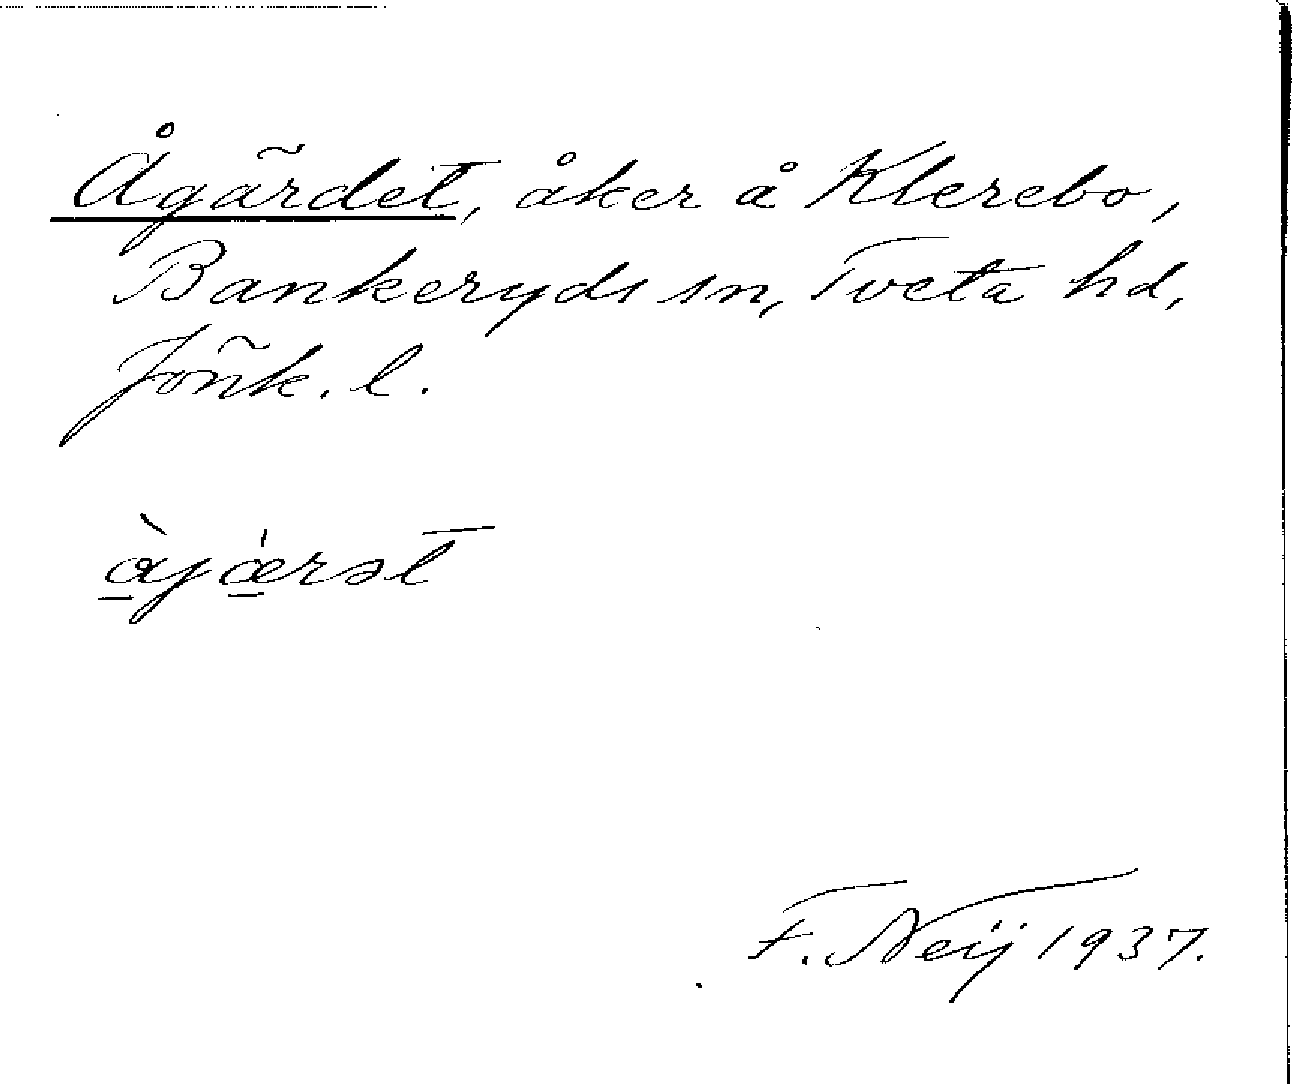 Ågärdet, åker å Klerebo,
Bankeryds sn, Tveta hd,
Jönk. l.
àjǽrət
F. Neij 1937.